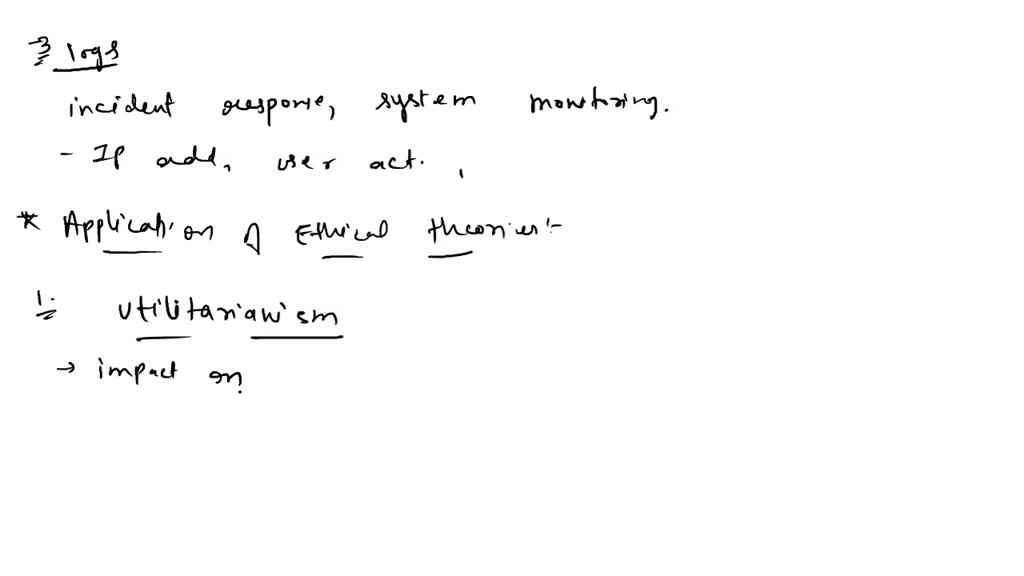 ⇒ logs
incident response, system monitoring.
- IP add, user act. ,
* Application of Ethical theories :-
1. Utilitarianism
→ impact on